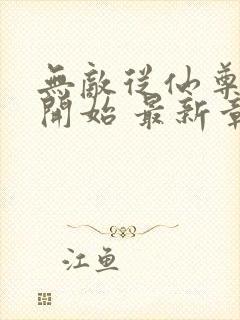 無敵從仙尊
開始 最新章
江鱼